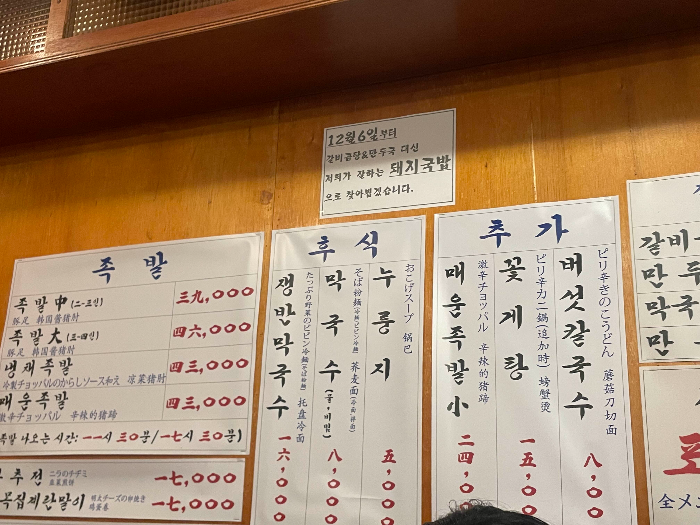 12월6일부터
갈비곰탕&만두국 대신
저희가 잘하는 돼지국밥
으로 찾아뵙겠습니다.
족발
족발 中 (二-三인) 三九,〇〇〇
豚足 韩国酱猪肘
족발 大 (三-四인) 四六,〇〇〇
豚足 韩国酱猪肘
냉채족발 四三,〇〇〇
冷製チョッパルのからしソース和え 凉菜猪肘
매운족발 四三,〇〇〇
激辛チョッパル 辛辣的猪蹄
족발 나오는 시간: 一一시 三〇분/一七시 三〇분)
추전 一七,〇〇〇
ニラのチヂミ
韭菜煎饼
목집계란말이 一七,〇〇〇
明太チーズの卵焼き
鸡蛋卷
후식
누룽지 五,〇〇
おこげスープ 锅巴
막국수 (물,비빔) 八,〇〇
そば粉麺 荞麦面
쟁반막국수 一六,〇〇
たっぷり野菜のビビン冷麺 托盘冷面
추가
버섯칼국수 八,〇〇
ピリ辛きのこうどん 蘑菇刀切面
꽃게탕 一五,〇〇
ピリ辛カニ鍋(追加時) 螃蟹煲
매운족발小 二四,〇〇
激辛チョッパル 辛辣的猪蹄
갈비
만두
막국
만
全メ